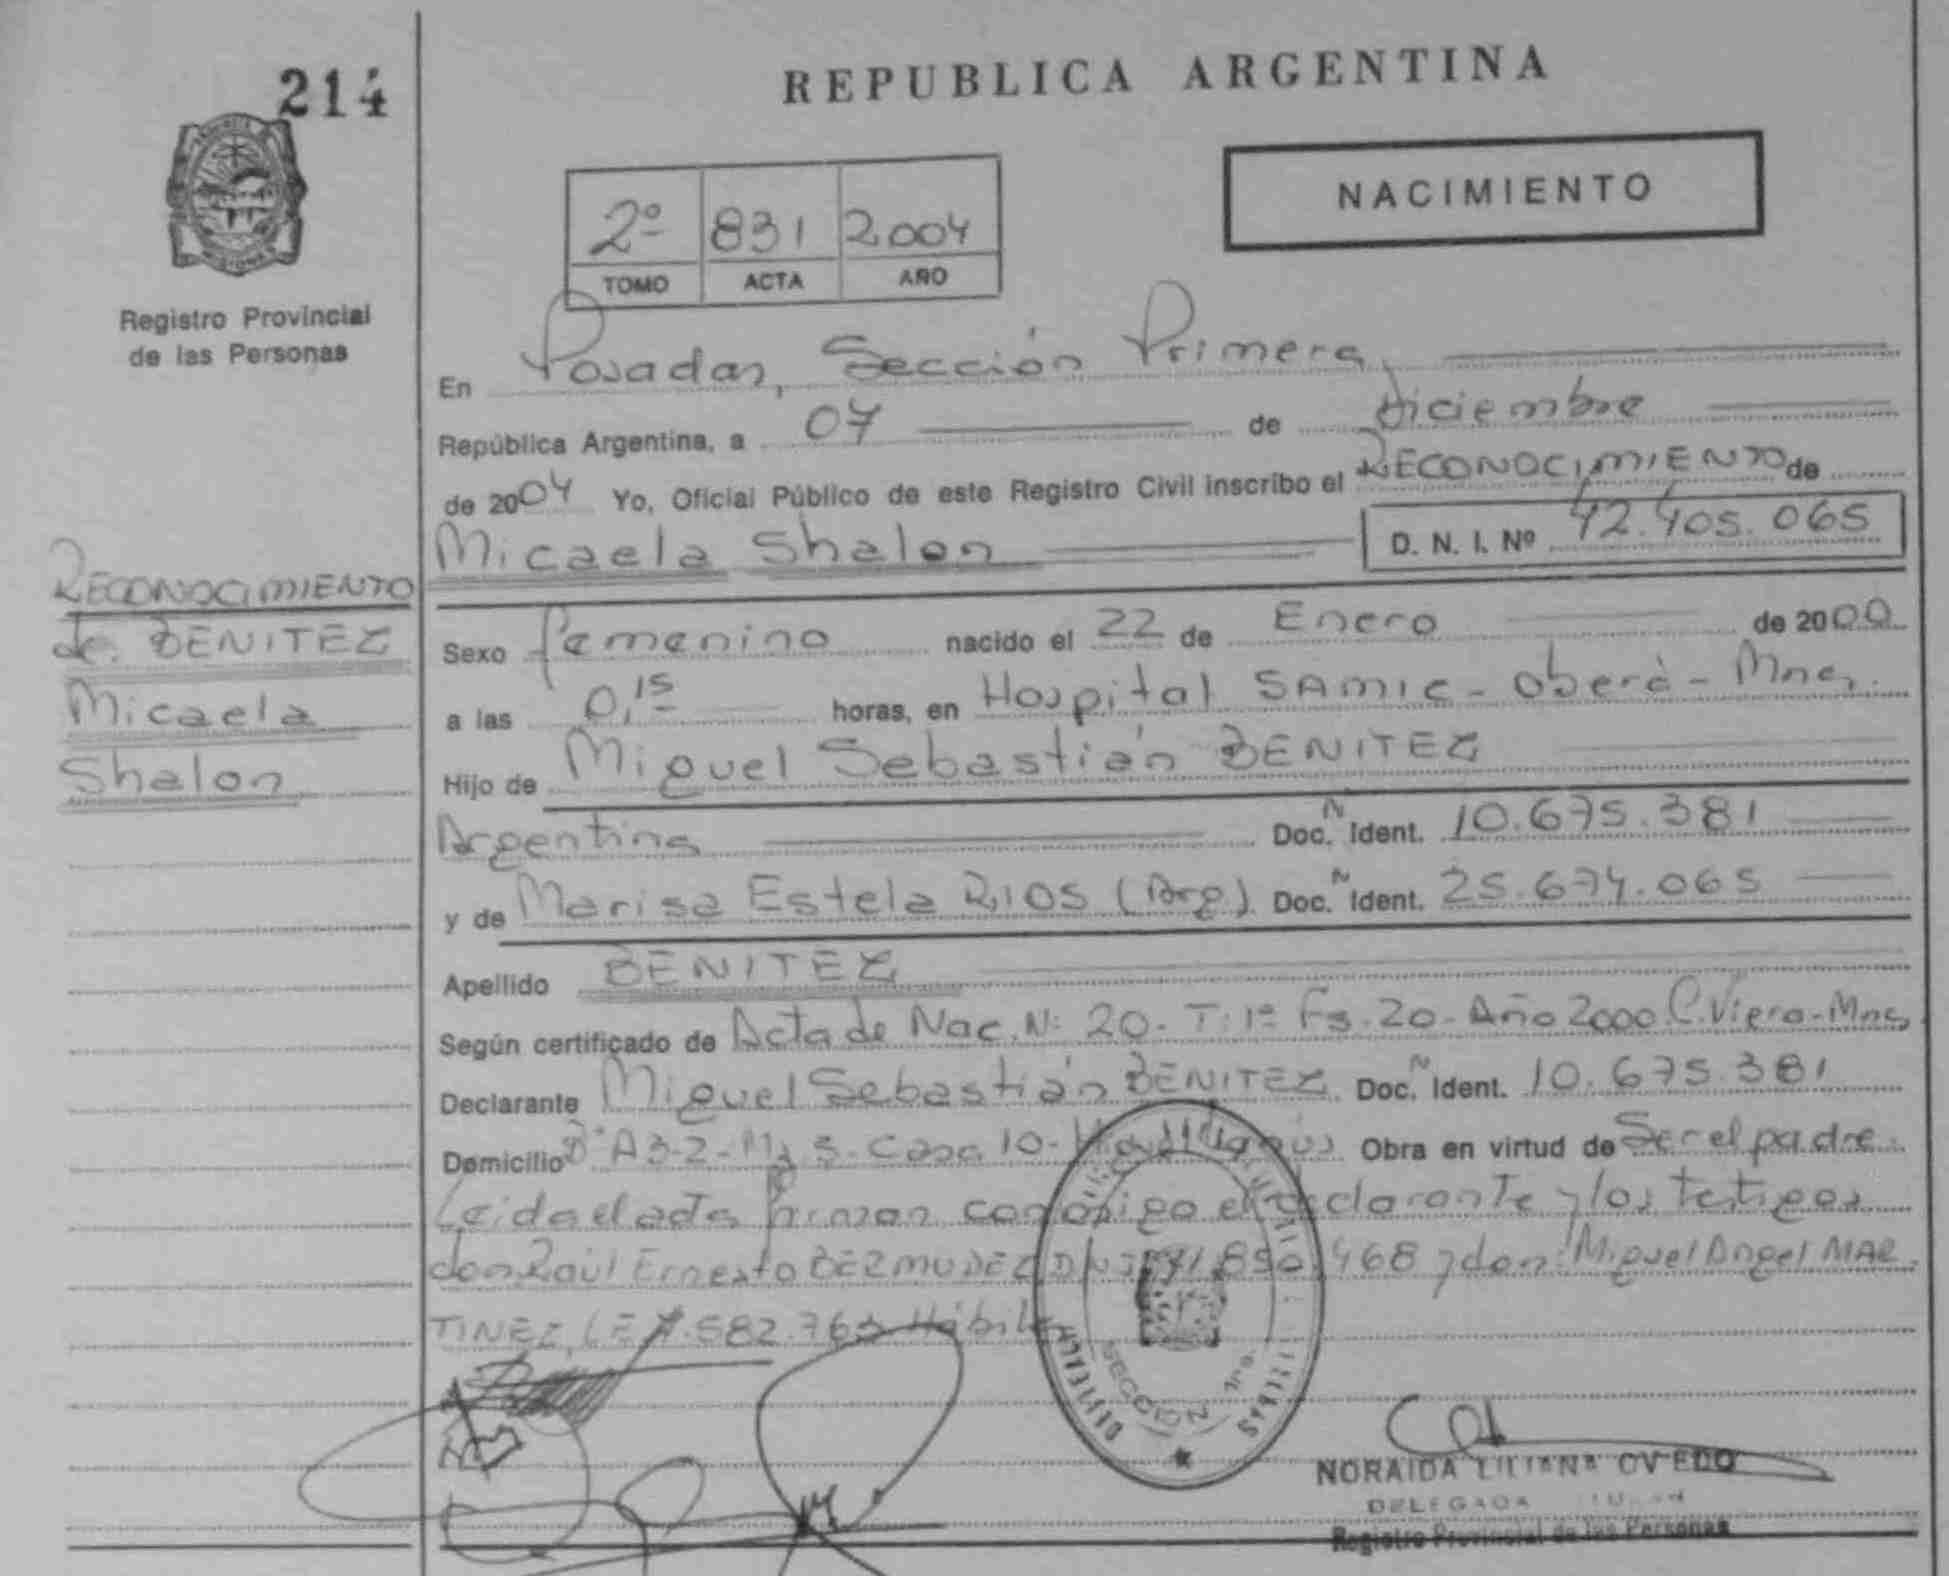 214
REPUBLICA ARGENTINA
NACIMIENTO
2º 831 2004
TOMO ACTA AÑO
Registro Provincial
de las Personas
En Posadas, Sección Primera,
República Argentina, a 07 de diciembre
de 2004 Yo, Oficial Público de este Registro Civil inscribo el RECONOCIMIENTO de
Micaela Shalon D. N. I. Nº 42.405.065
RECONOCIMIENTO
de BENITEZ
Micaela
Shalon
Sexo femenino nacido el 22 de Enero de 2000
a las 0,15 horas, en Hospital SAMIC - Oberá - Mnes.
Hijo de Miguel Sebastián BENITEZ
Argentina Doc. Ident. 10.675.381
y de Marisa Estela RIOS (Arg) Doc. Ident. 25.674.065
Apellido BENITEZ
Según certificado de Acta de Nac. Nº 20 - T: 1º Fs. 20 - Año 2000 C. Viera - Mnes
Declarante Miguel Sebastián BENITEZ Doc. Ident. 10.675.381
Domicilio Bº A3-2 - Mz 5 - Casa 10 - Obra en virtud de Ser el padre.
Leida el acta firman conmigo el declarante y los testigos
don Raúl Ernesto BERMUDEZ DNI 468 y don Miguel Angel MAR
TINEZ, LE 7.582.763 Hábiles
SECCION 1ra.
NORAIDA LILIANA OVIEDO
DELEGADA
Registro Provincial de las Personas